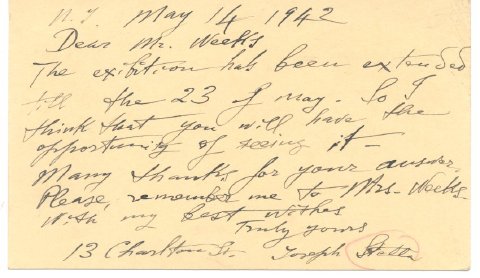 N.Y. May 14 1942
Dear Mr. Weeks
The exibition has been extended
till the 23 of May. So I
think that you will have the
opportunity of seeing it -
Many thanks for your answer.
Please, remember me to Mrs. Weeks -
With my best wishes
Truly yours
13 Charlton St. Joseph Stella